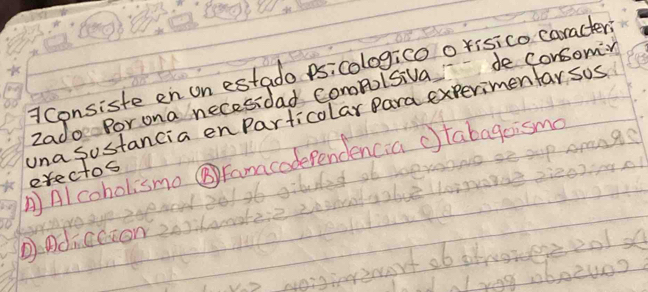 7Consiste en un estado Psicologico o Fisico caracteri
zado Por una necesidad compulsiva -- de consomir
una sustancia en Particolar Para experimentar sus
efectos
A) Alcoholismo B) Famacodependencia c) tabaquismo
D) Adiccion